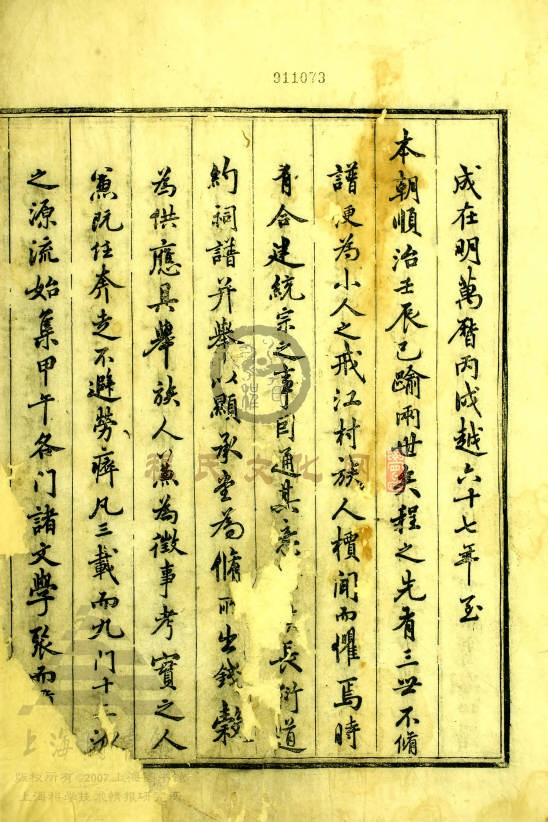 911073
成在明萬曆丙戌越六十七年至
本朝順治壬辰已踰兩世矣程之先有三世不脩
譜便為小人之戒江村族人櫝聞而懼焉時
有合建統宗之事因通其意 長衍道
約祠譜并舉以顯承堂為脩 出錢穀
為供應具舉族人 為徵事考實之人
 既任奔走不避勞瘁凡三載而九门十二
之源流始集甲午各门諸文學聚而
程氏文化网
上海
版权所有©2007上海图书馆
上海科学技术情报研究所